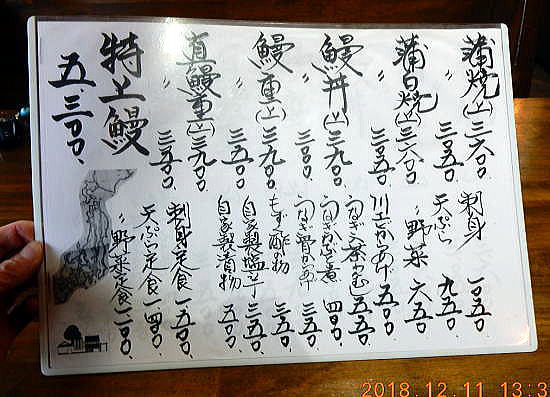 蒲焼(上)三六〇〇.
〃 三〇五〇.
蒲白焼(上)三六〇〇.
〃 三〇五〇.
鰻丼(上)三九〇〇.
〃 三一〇〇.
鰻重(上)三九〇〇.
〃 三一五〇.
直鰻重(上)三九〇〇.
〃 三一五〇.
特上鰻
五.三〇〇.
刺身 一〇五〇.
天ぷら 九五〇.
〃野菜 六五〇.
川エビからあげ 五五〇.
うなぎ茶わんむし 五五〇.
うなぎ骨からあげ 三五〇.
もずく酢の物 三五〇.
自家製塩辛 三五〇.
自家製漬物 五五〇.
刺身定食 一五〇〇.
天ぷら定食 一四〇〇.
〃野菜定食 一二〇〇.
2018.12.11 13:3